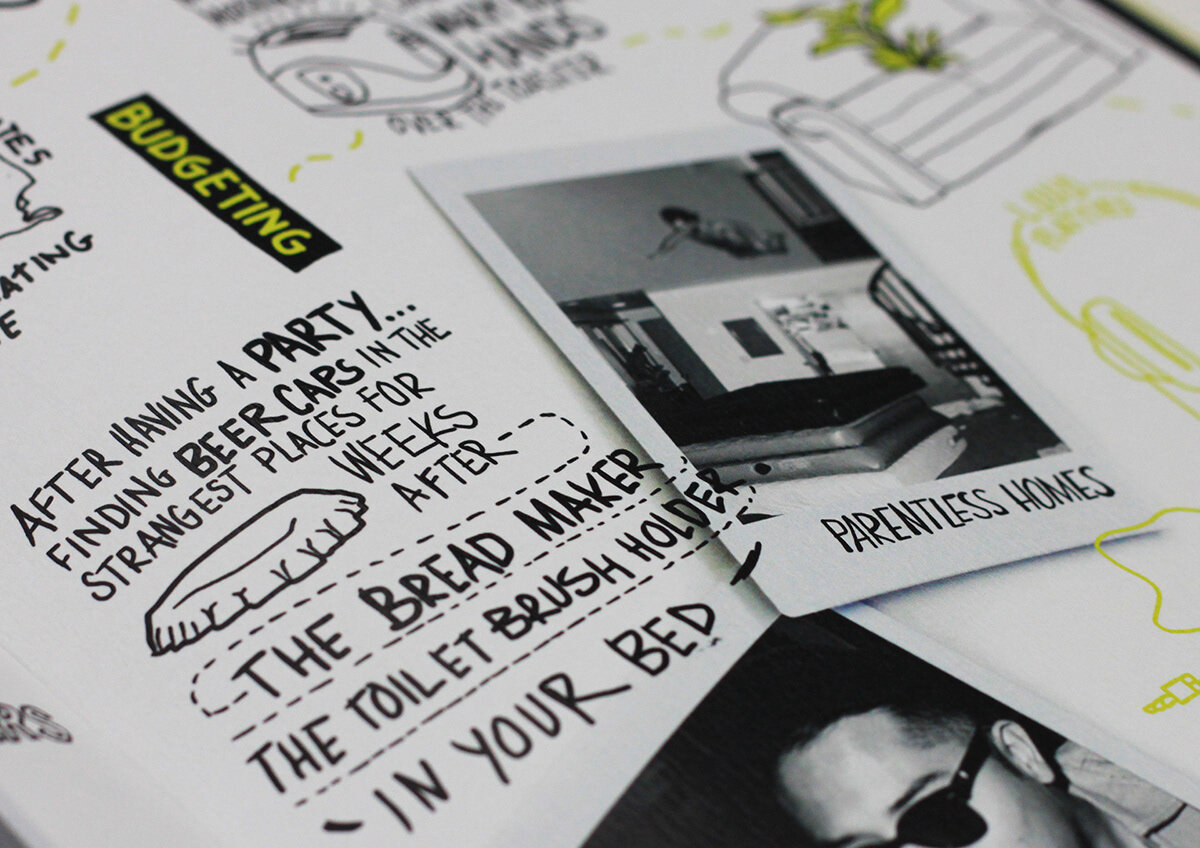 HANDS
OVER THE TOASTER
BUDGETING
AFTER HAVING A PARTY...
FINDING BEER CAPS IN THE
STRANGEST PLACES FOR
WEEKS
AFTER
THE BREAD MAKER
THE TOILET BRUSH HOLDER
IN YOUR BED
PARENTLESS HOMES